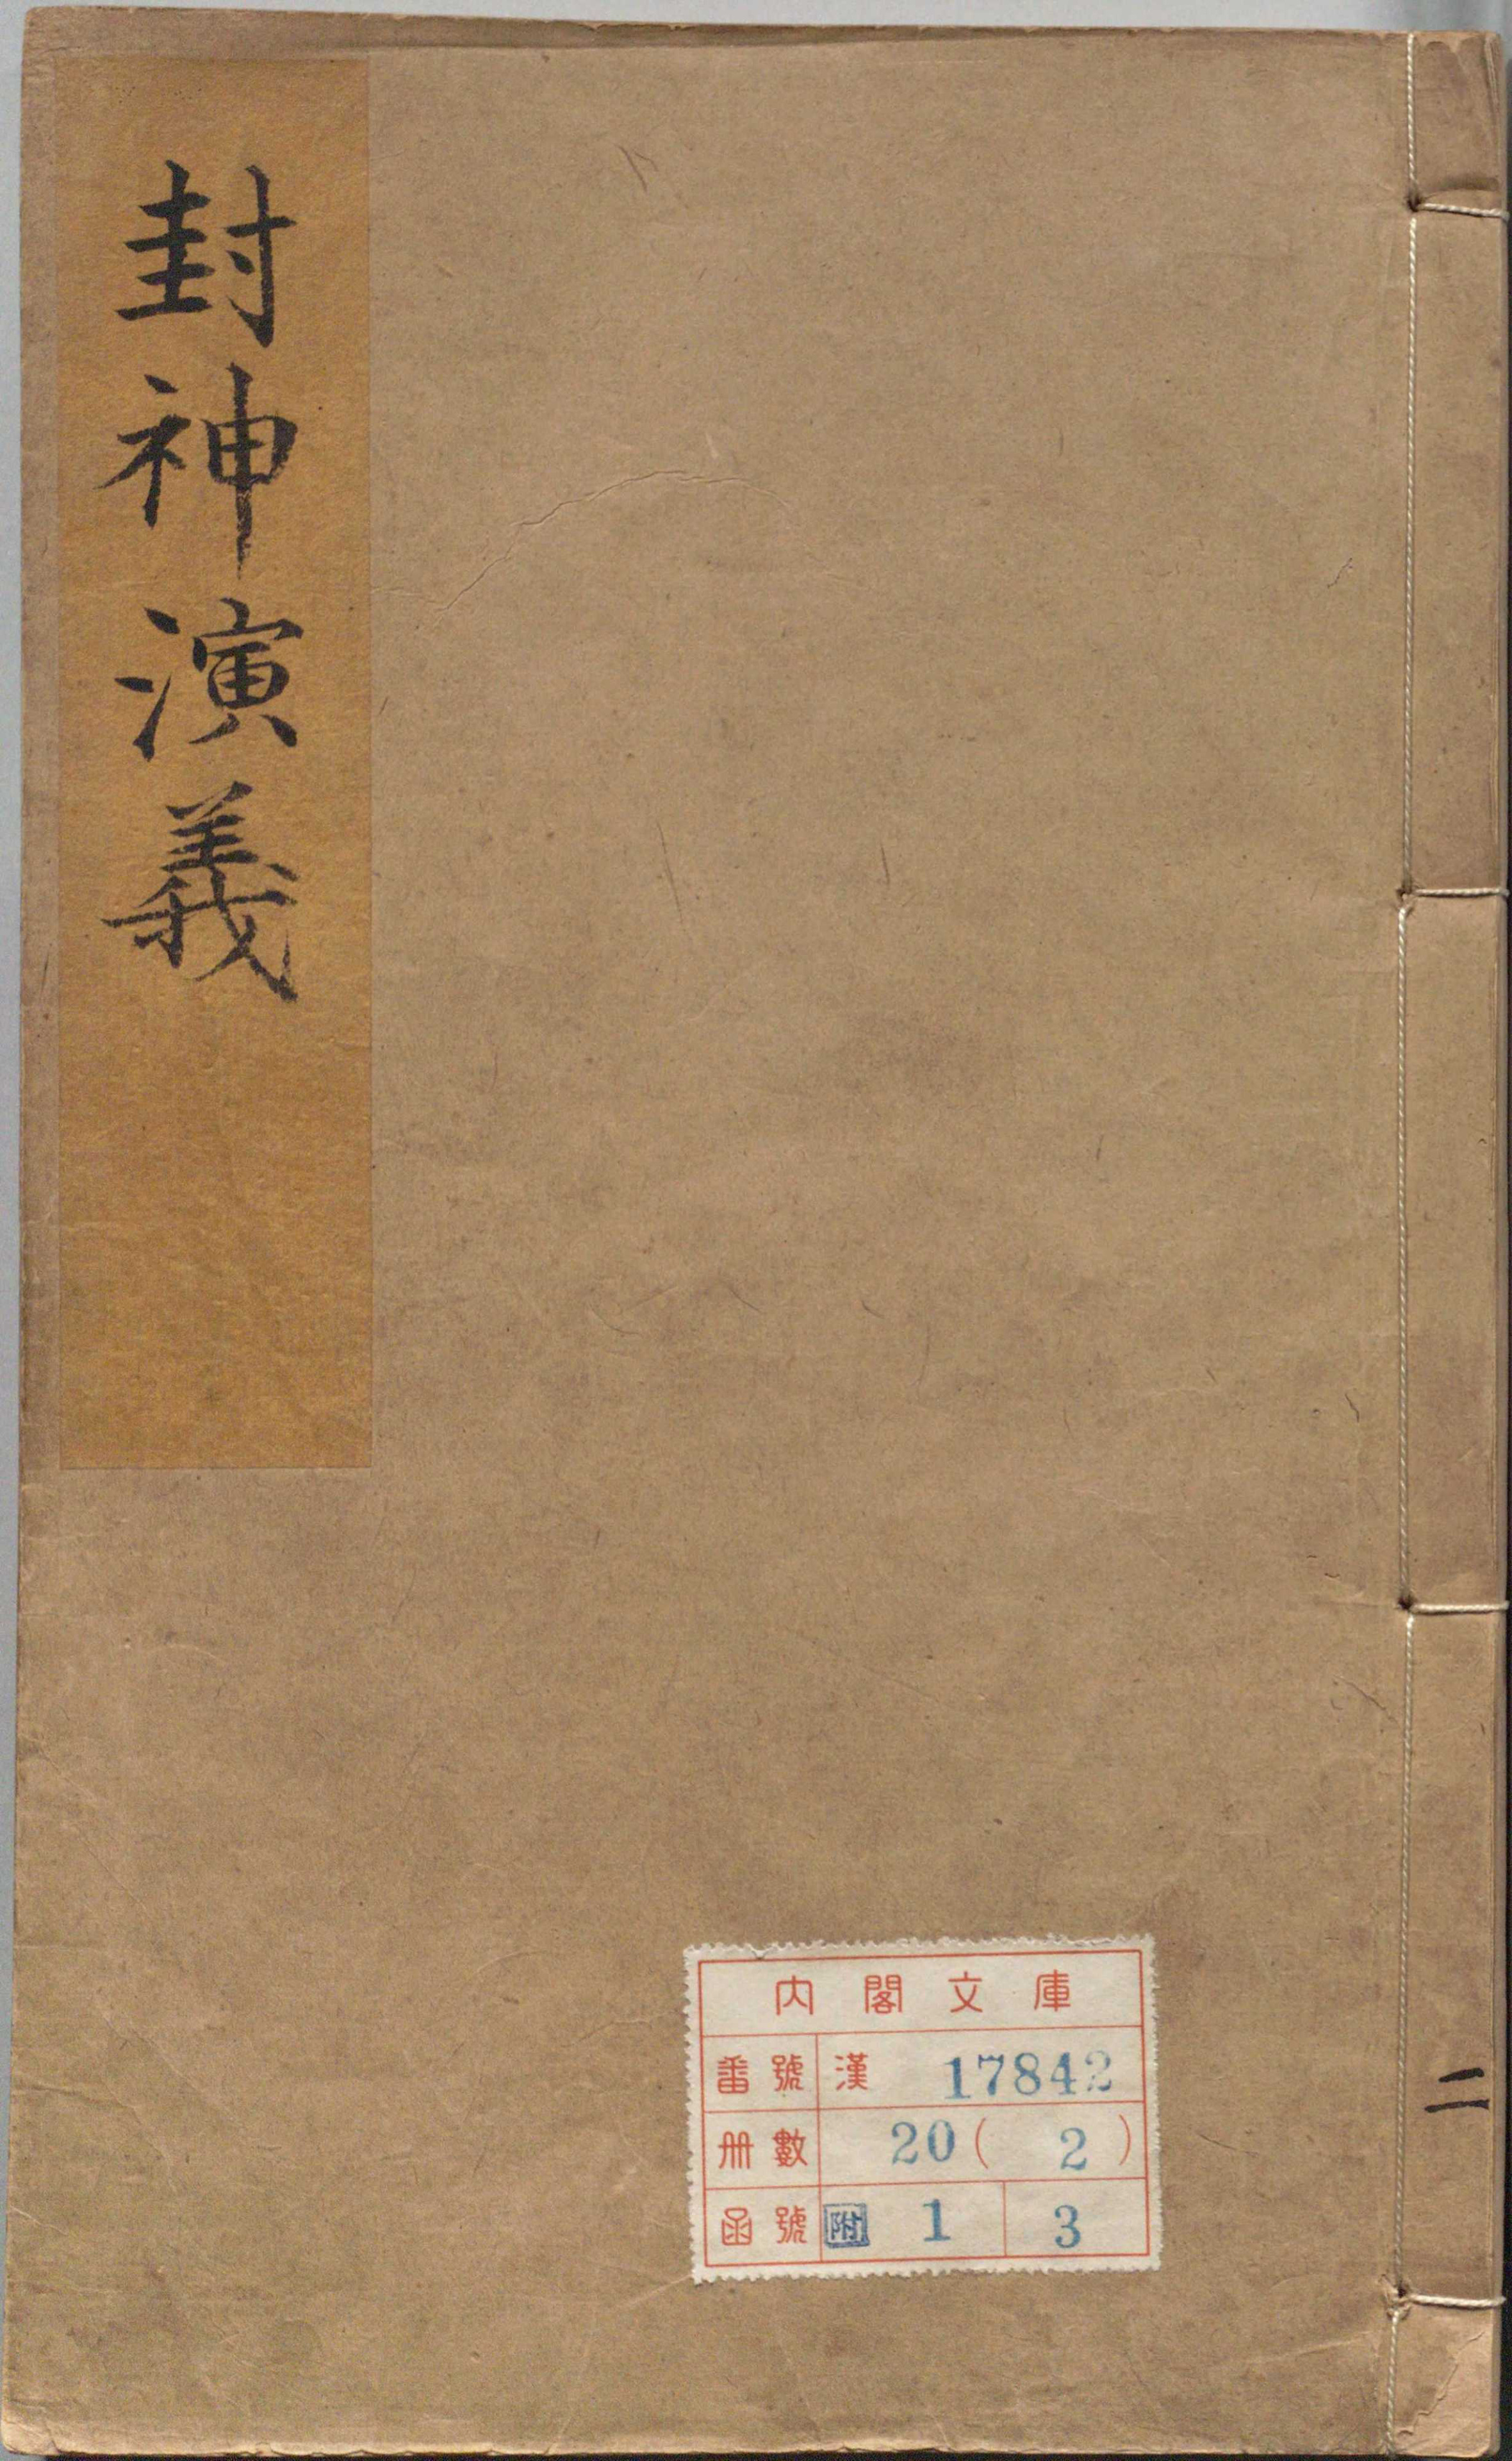 封神演義
内閣文庫
番號 漢 17842
冊數 20( 2 )
函號 附 1 3
二